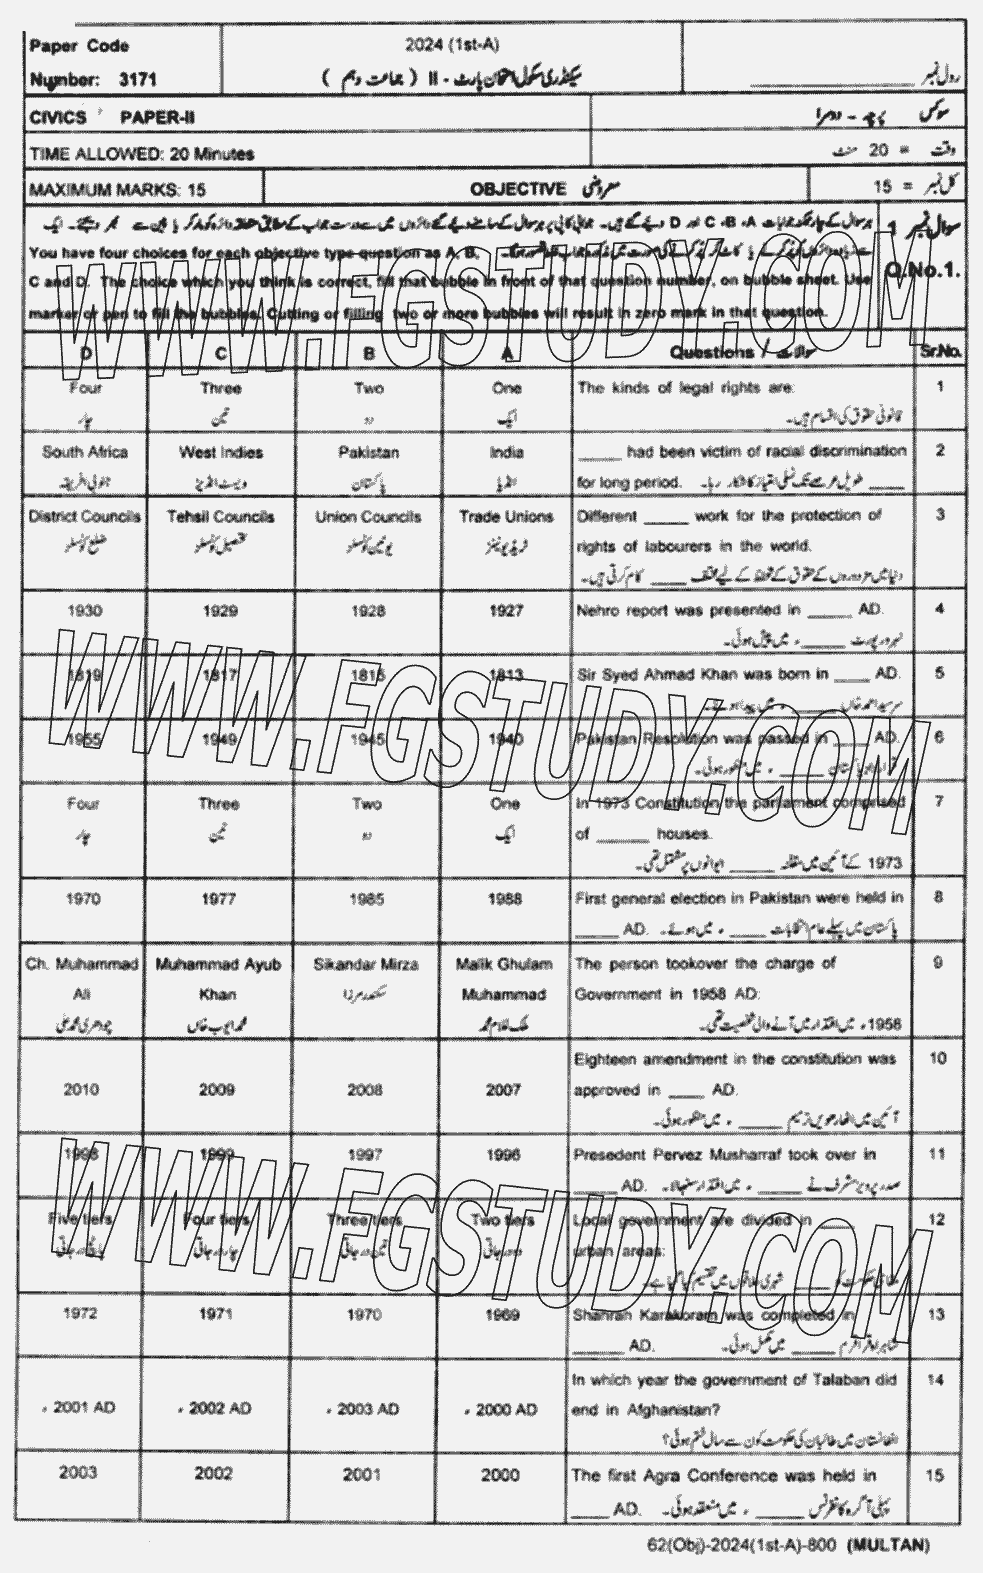 Paper Code
Number: 3171
2024 (1st-A)
سیکنڈری سکول امتحان پارٹ - II ( جماعت دہم )
رول نمبر ____________
CIVICS PAPER-II
سوکس پرچہ - دوسرا
TIME ALLOWED: 20 Minutes
وقت = 20 منٹ
MAXIMUM MARKS: 15
OBJECTIVE معروضی
کل نمبر = 15
سوال نمبر 1
Q.No.1.
You have four choices for each objective type question as A, B,
C and D. The choice which you think is correct, fill that bubble in front of that question number, on bubble sheet. Use
marker or pen to fill the bubbles. Cutting or filling two or more bubbles will result in zero mark in that question.
D C B A Questions / سوالات Sr.No.
Four Three Two One The kinds of legal rights are: 1
چار تین دو ایک قانونی حقوق کی اقسام ہیں۔
South Africa West Indies Pakistan India ____ had been victim of racial discrimination 2
جنوبی افریقہ ویسٹ انڈیز پاکستان انڈیا for long period. ____ طویل عرصے تک نسلی امتیاز کا شکار رہا۔
District Councils Tehsil Councils Union Councils Trade Unions Different ____ work for the protection of 3
ضلع کونسلز تحصیل کونسلز یونین کونسلز ٹریڈ یونینز rights of labourers in the world.
دنیا میں مزدوروں کے حقوق کے تحفظ کے لیے مختلف ____ کام کرتی ہیں۔
1930 1929 1928 1927 Nehro report was presented in ____ AD. 4
نہرو رپورٹ ____ ء میں پیش ہوئی۔
1819 1817 1815 1813 Sir Syed Ahmad Khan was born in ____ AD. 5
سر سید احمد خاں ____ میں پیدا ہوئے۔
1955 1949 1945 1940 Pakistan Resolution was passed in ____ AD. 6
قرارداد پاکستان ____ ء میں منظور ہوئی۔
Four Three Two One In 1973 Constitution the parliament comprised 7
چار تین دو ایک of ____ houses.
1973 کے آئین میں مقننہ ____ ایوانوں پر مشتمل تھی۔
1970 1977 1985 1988 First general election in Pakistan were held in 8
____ AD. پاکستان میں پہلے عام انتخابات ____ ء میں ہوئے۔
Ch. Muhammad Muhammad Ayub Sikandar Mirza Malik Ghulam The person tookover the charge of 9
Ali Khan سکندر مرزا Muhammad Government in 1958 AD:
چودھری محمد علی محمد ایوب خاں ملک غلام محمد 1958ء میں اقتدار میں آنے والی شخصیت تھی۔
Eighteen amendment in the constitution was 10
2010 2009 2008 2007 approved in ____ AD.
آئین میں اٹھارھویں ترمیم ____ ء میں منظور ہوئی۔
1998 1999 1997 1996 Presedent Pervez Musharraf took over in 11
____ AD. صدر پرویز مشرف نے ____ ء میں اقتدار سنبھالا۔
Five tiers Four tiers Three tiers Two tiers Local government are divided in ____ 12
پانچ درجاتی چار درجاتی تین درجاتی دو درجاتی urban areas:
مقامی حکومت کو ____ شہری علاقوں میں تقسیم کیا گیا ہے۔
1972 1971 1970 1969 Shahrah Karakoram was completed in 13
____ AD. شاہراہ قراقرم ____ میں مکمل ہوئی۔
In which year the government of Talaban did 14
ء 2001 AD ء 2002 AD ء 2003 AD ء 2000 AD end in Afghanistan?
افغانستان میں طالبان کی حکومت کون سے سال ختم ہوئی؟
2003 2002 2001 2000 The first Agra Conference was held in 15
____ AD. پہلی آگرہ کانفرنس ____ ء میں منعقد ہوئی۔
62(Obj)-2024(1st-A)-800 (MULTAN)
WWW.FGSTUDY.COM
WWW.FGSTUDY.COM
WWW.FGSTUDY.COM